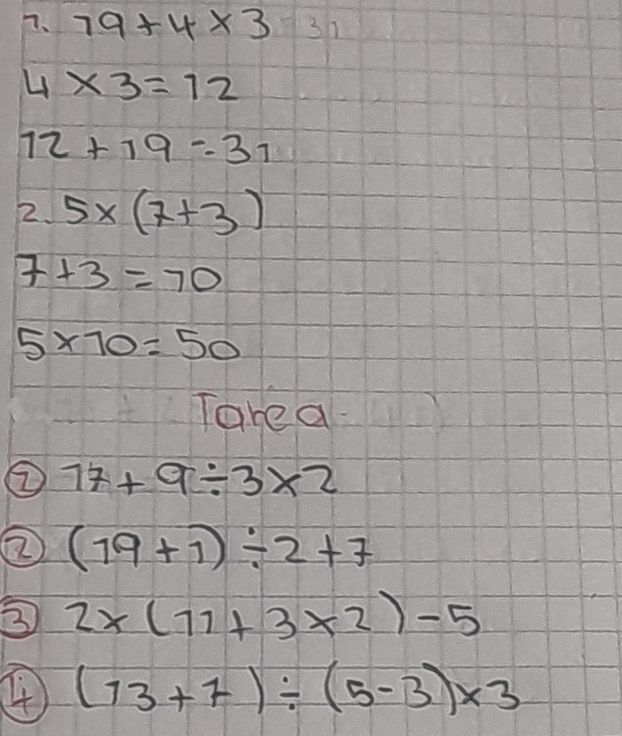 1. 19+4×3 31
4×3=12
12+19=31
2. 5×(7+3)
7+3=10
5×10=50
Tarea
① 17+9÷3×2
② (19+1)÷2+7
③ 2×(11+3×2)-5
④ (13+7)÷(5-3)×3